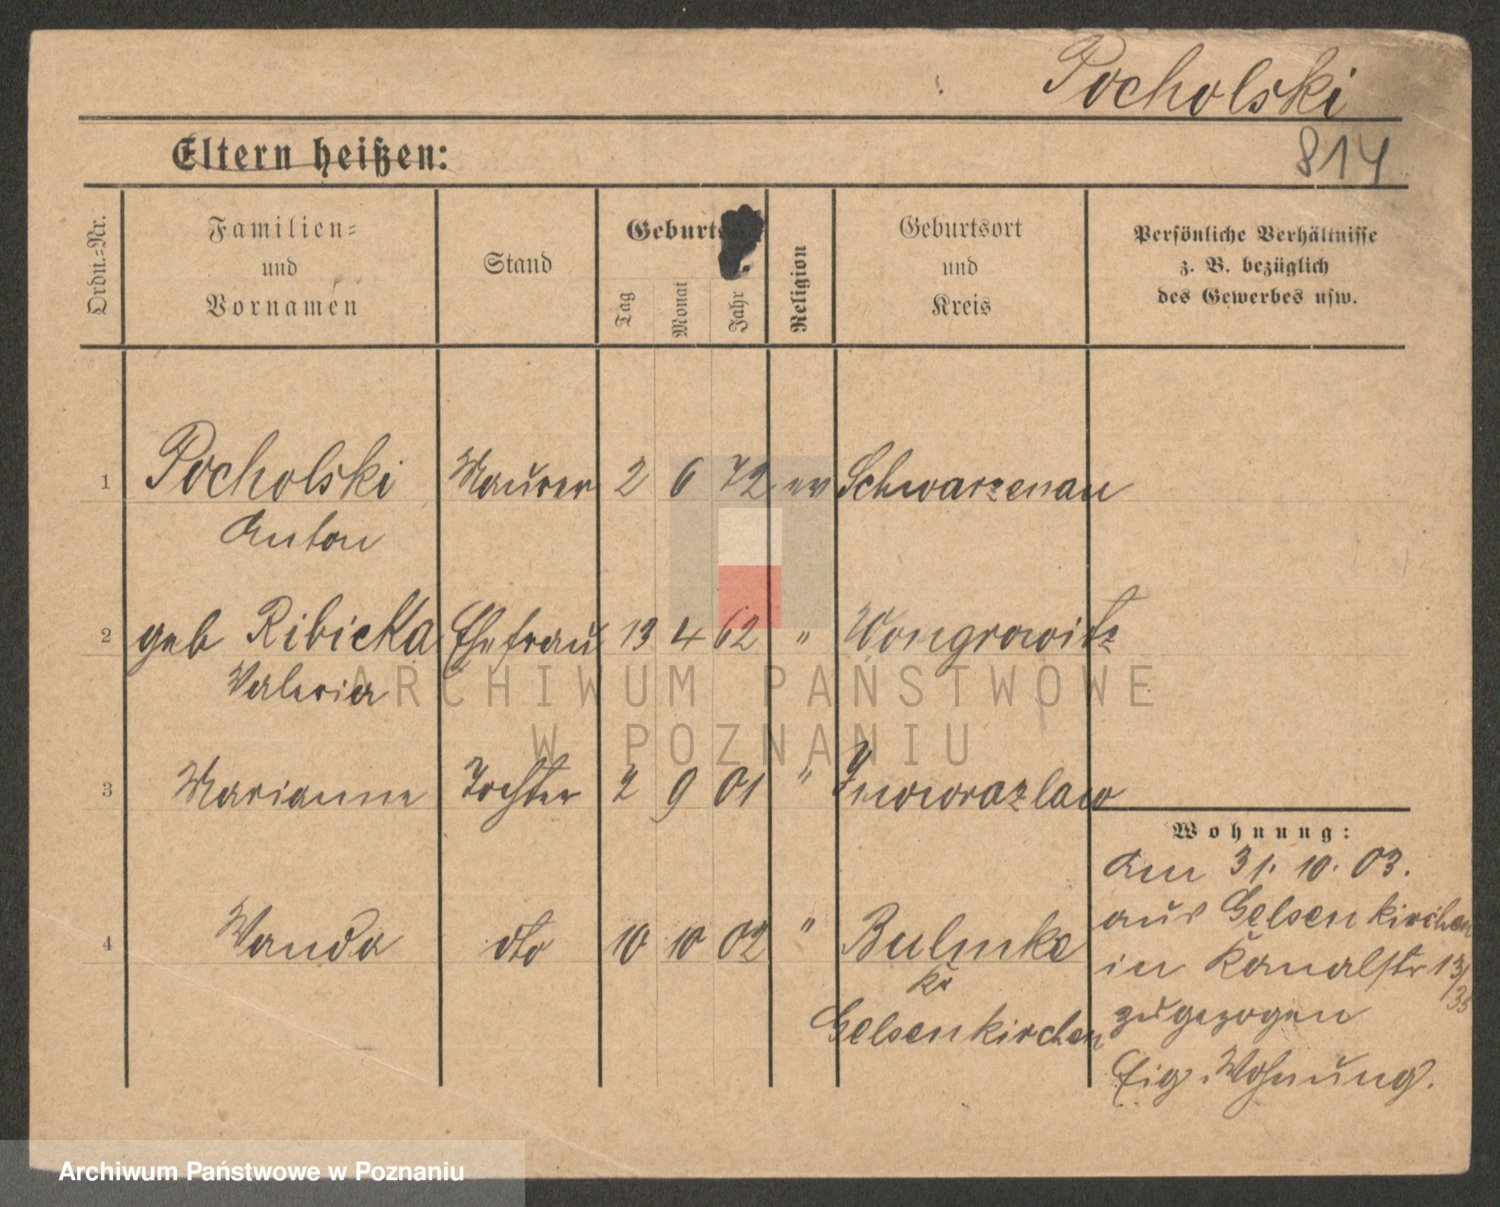 Pocholski
814
Eltern heißen:
Ordn.-Nr.
Familien-
und
Vornamen
Stand
Geburts
Tag
Monat
Jahr
Religion
Geburtsort
und
Kreis
Persönliche Verhältnisse
z. B. bezüglich
des Gewerbes usw.
1 Pocholski Maurer 2 6 72 ev Schwarzenau
Anton
2 geb Ribicka Ehefrau 13 4 62 " Wongrowitz
Valeria
3 Marianne Tochter 2 9 01 " Inowrazlaw
4 Wanda dto 10 10 02 " Bulmke
Kr
Gelsenkirchen
Wohnung:
Am 31. 10. 03.
aus Gelsenkirchen
in Kanalstr 13/35
zugezogen
Eig. Wohnung.
ARCHIWUM PAŃSTWOWE
W POZNANIU
Archiwum Państwowe w Poznaniu